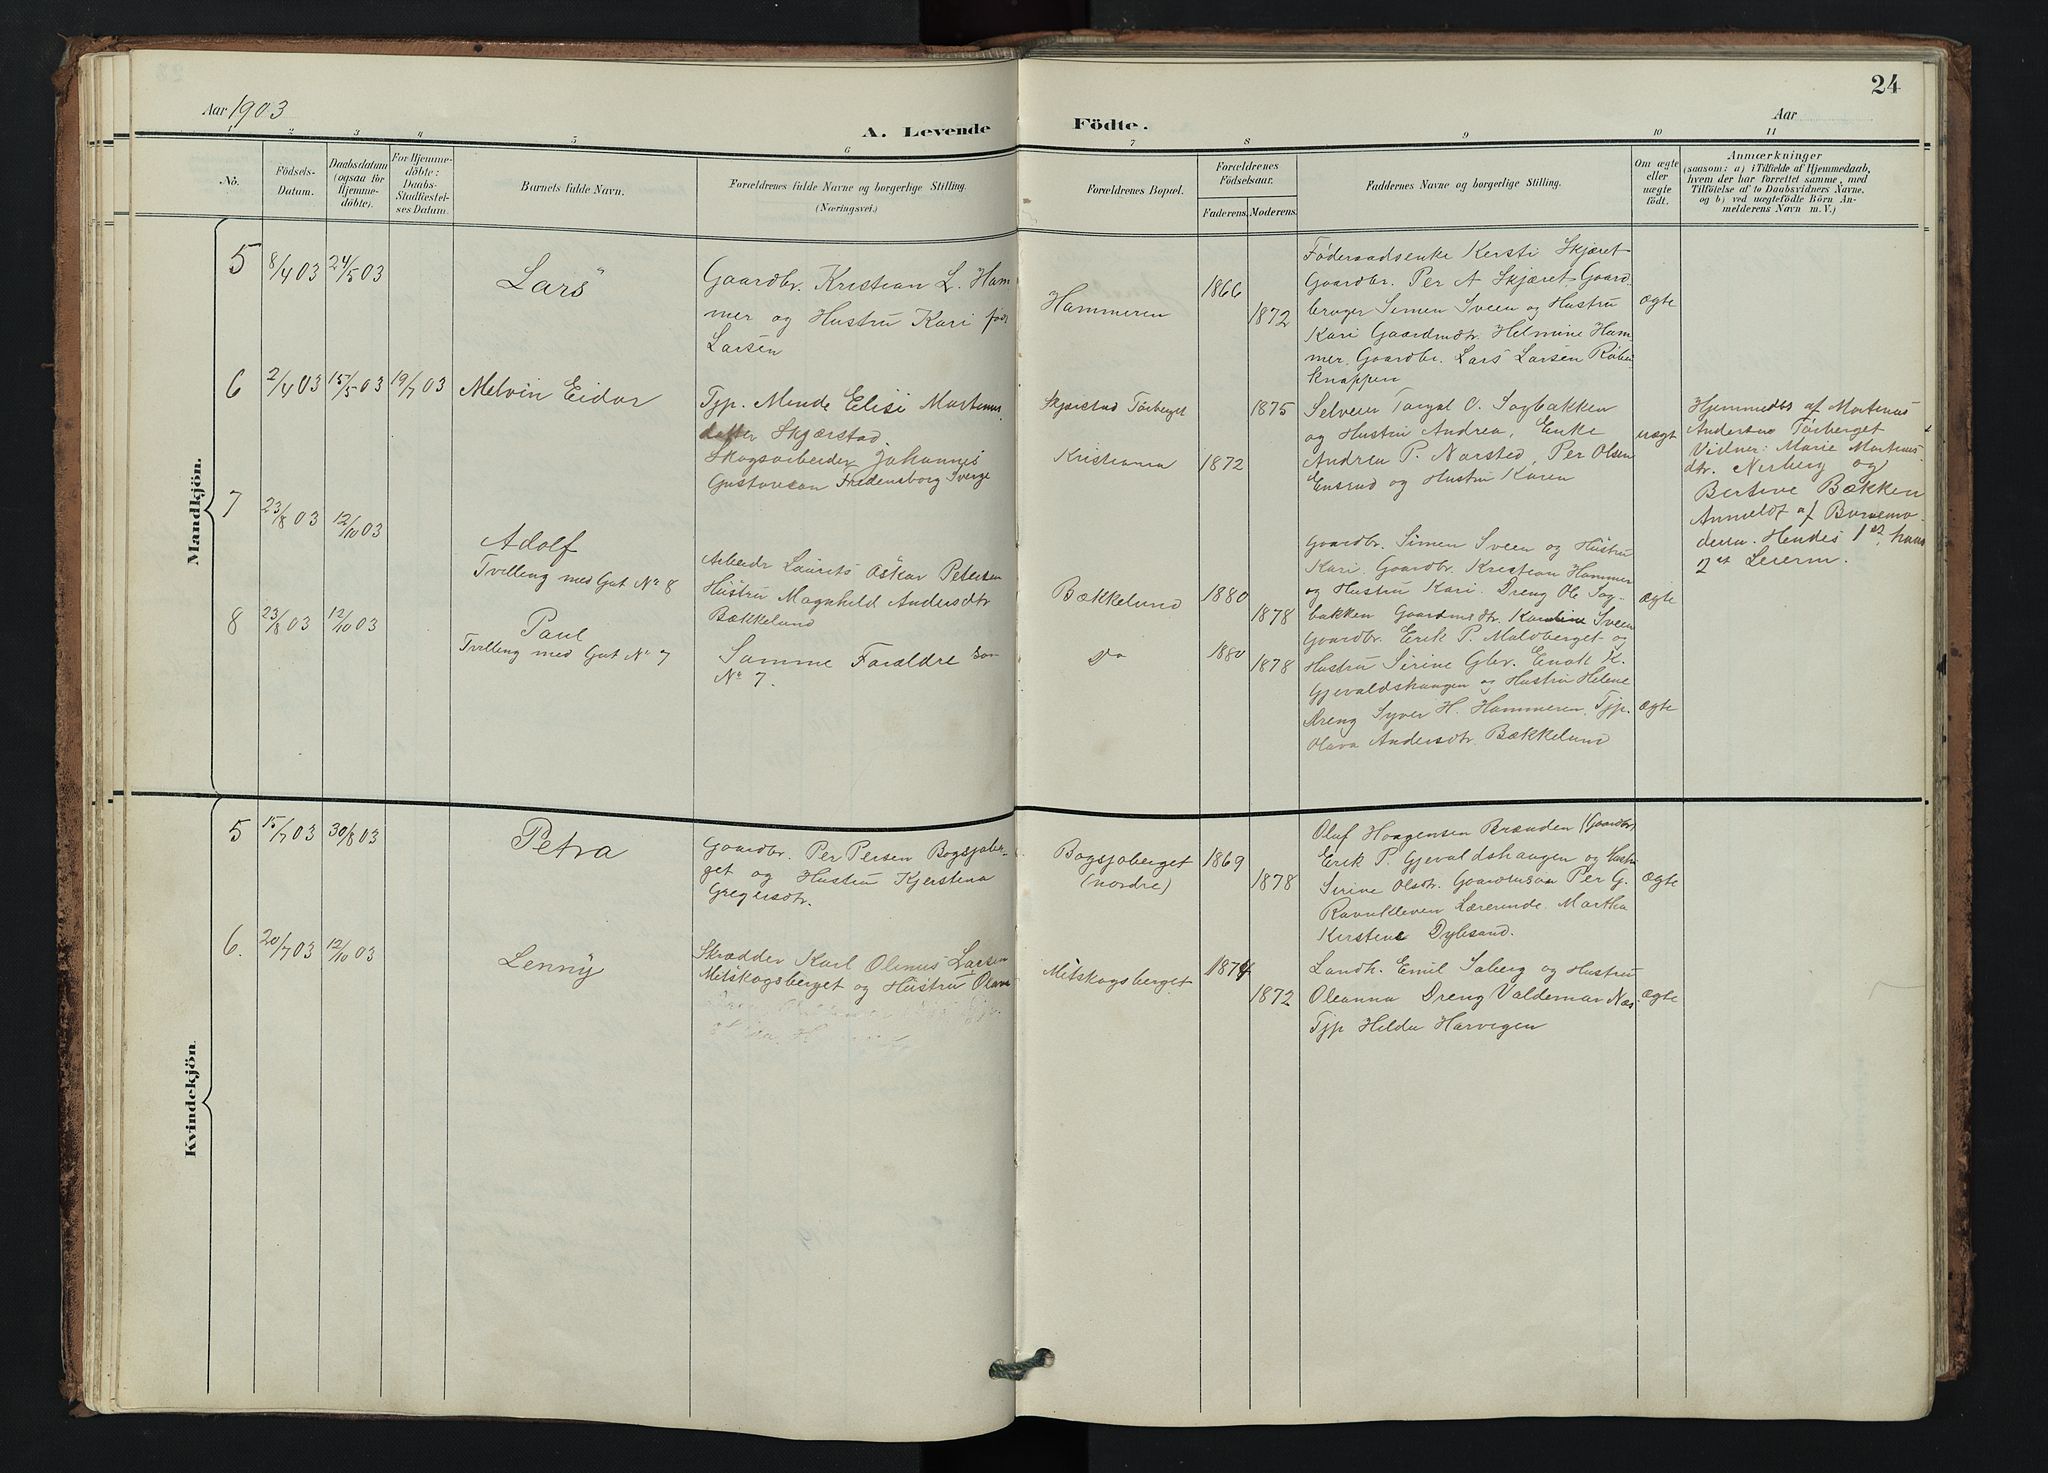 24
Aar 1903
A. Levende Födte.
Aar
1 2 3 4 5 6 7 8 9 10 11
No.
Födsels-
Datum.
Daabsdatum
(ogsaa for
Hjemme-
döbte).
For Hjemme-
döbte:
Daabs-
Stadfæstel-
ses Datum.
Barnets fulde Navn.
Forældrenes fulde Navne og borgerlige Stilling.
(Næringsvei.)
Forældrenes Bopæl.
Forældrenes
Födselsaar.
Faderens. Moderens.
Faddernes Navne og borgerlige Stilling.
Om ægte
eller
uægte
født.
Anmærkninger
(saasom: a) i Tilfælde af Hjemmedaab,
hvem der har forrettet samme, med
Tilføielse af to Daabsvidners Navne,
og b) ved uægtefödte Börn An-
melderens Navn m. V.)
Mandkjön.
5
8/4 03
24/5 03
Lars
Gaardbr. Kristian L. Ham
mer og Hustru Kari født
Larsen
Hammeren
1866
1872
Føderaadsenke Kersti Skjæret
Gaardbr. Per A Skjæret Gaard
bruger Simen Sveen og Hustru
Kari Gaardmdtr. Helmine Ham
mer. Gaardbr. Lars Larsen
knappen
ægte
6
2/4 03
15/5 03
19/7 03
Melvin Eidar
Tjp. Mende Elisi Martinus
datter Skjærstad.
Skogsarbeider Johannes
Gustavson Fredensborg Sverge
Skjærstad Tørberget
Kristiania
1875
1872
Selveier Torgal O. Sagbakken
og Hustru Andrea, Enke
Andrea P. Narsted, Per Olsen
Ensrud og Hustru Karen
uægt
Hjemmedbt af Martinus
Andersen Tørberget
Vidner: Marie Martinus
dtr. Nerberg og
Bertine Bækken
Anmeldt af Barnemo
deren. Hendes 1st, hans
2et Leierm.
7
23/8 03
12/10 03
Adolf
Tvilling med Gut No 8
Arbeidr Laurits Oskar Petersen
Hustru Magnhild Andersdtr
Bækkelund
Bækkelund
1880
1878
Gaardbr. Simen Sveen og Hustru
Kari. Gaardbr. Kristian Hammer
og Hustru Kari. Dreng Ole Sag-
bakken Gaardmdtr. Karoline Sveen
ægte
8
23/8 03
12/10 03
Paul
Tvilling med Gut No 7
Samme Foræld͏re som
No 7.
Do
1880
1878
Gaardbr. Erik P. Moldberget og
Hustru Sirine Gbr. Enok K.
Gjevaldshaugen og Hustru Helene
Dreng Syver H. Hammeren. Tjp.
Olava Andersdtr. Bækkelund
ægte
Kvindekjön.
5
15/7 03
30/8 03
Petra
Gaardbr. Per Persen Bogsjøber-
get og Hustru Kjerstina
Gregersdtr.
Bogsjøberget
(nordre)
1869
1878
Oluf Haagensen Brænden (Gaardbr)
Erik P. Gjevaldshaugen og Hustru
Sirine Olsdtr. Gaardmsøn Per G.
Ravnkleven Lærerinde. Martha
Kerstine Dybsand.
ægte
6.
20/7 03
12/10 03
Lenny
Skrædder Karl Olinus Larsen
Mitskogsberget og Hustru Olava
Mitskogsberget
1874
1872
Landh. Emil Søberg og Hustru
Oleanna Dreng Valdemar Næs
Tjp Hilda Harvigen
ægte